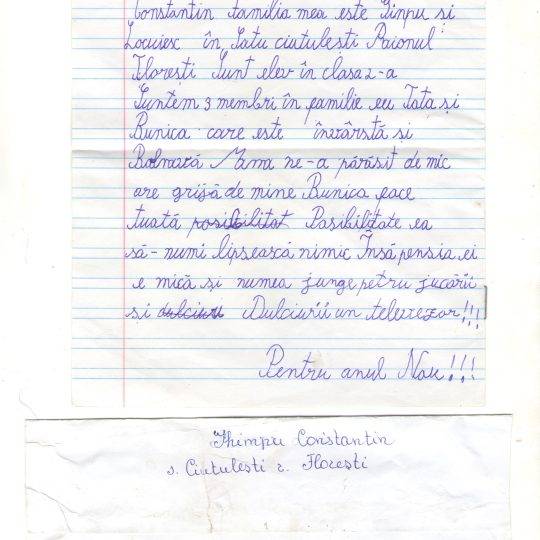 Constantin familia mea este Ginpu și
Locuiesc în Satu ciutulești Raionul
Florești Sunt elev în clasa 2-a
Suntem 3 membri în familie eu Tata și
Bunica care este învârstă și
Bolnavă Mama ne-a părăsit de mic
are grijă de mine Bunica face
tuată posibilitat Pasibilitate ea
să-numi lipsească nimic Însă pensia ei
e mică și numea junge petru jucării
și dulciuri Dulciurii un televezor!!!
Pentru anul Nou!!!
Ghimpu Constantin
s. Ciutulești r. Florești